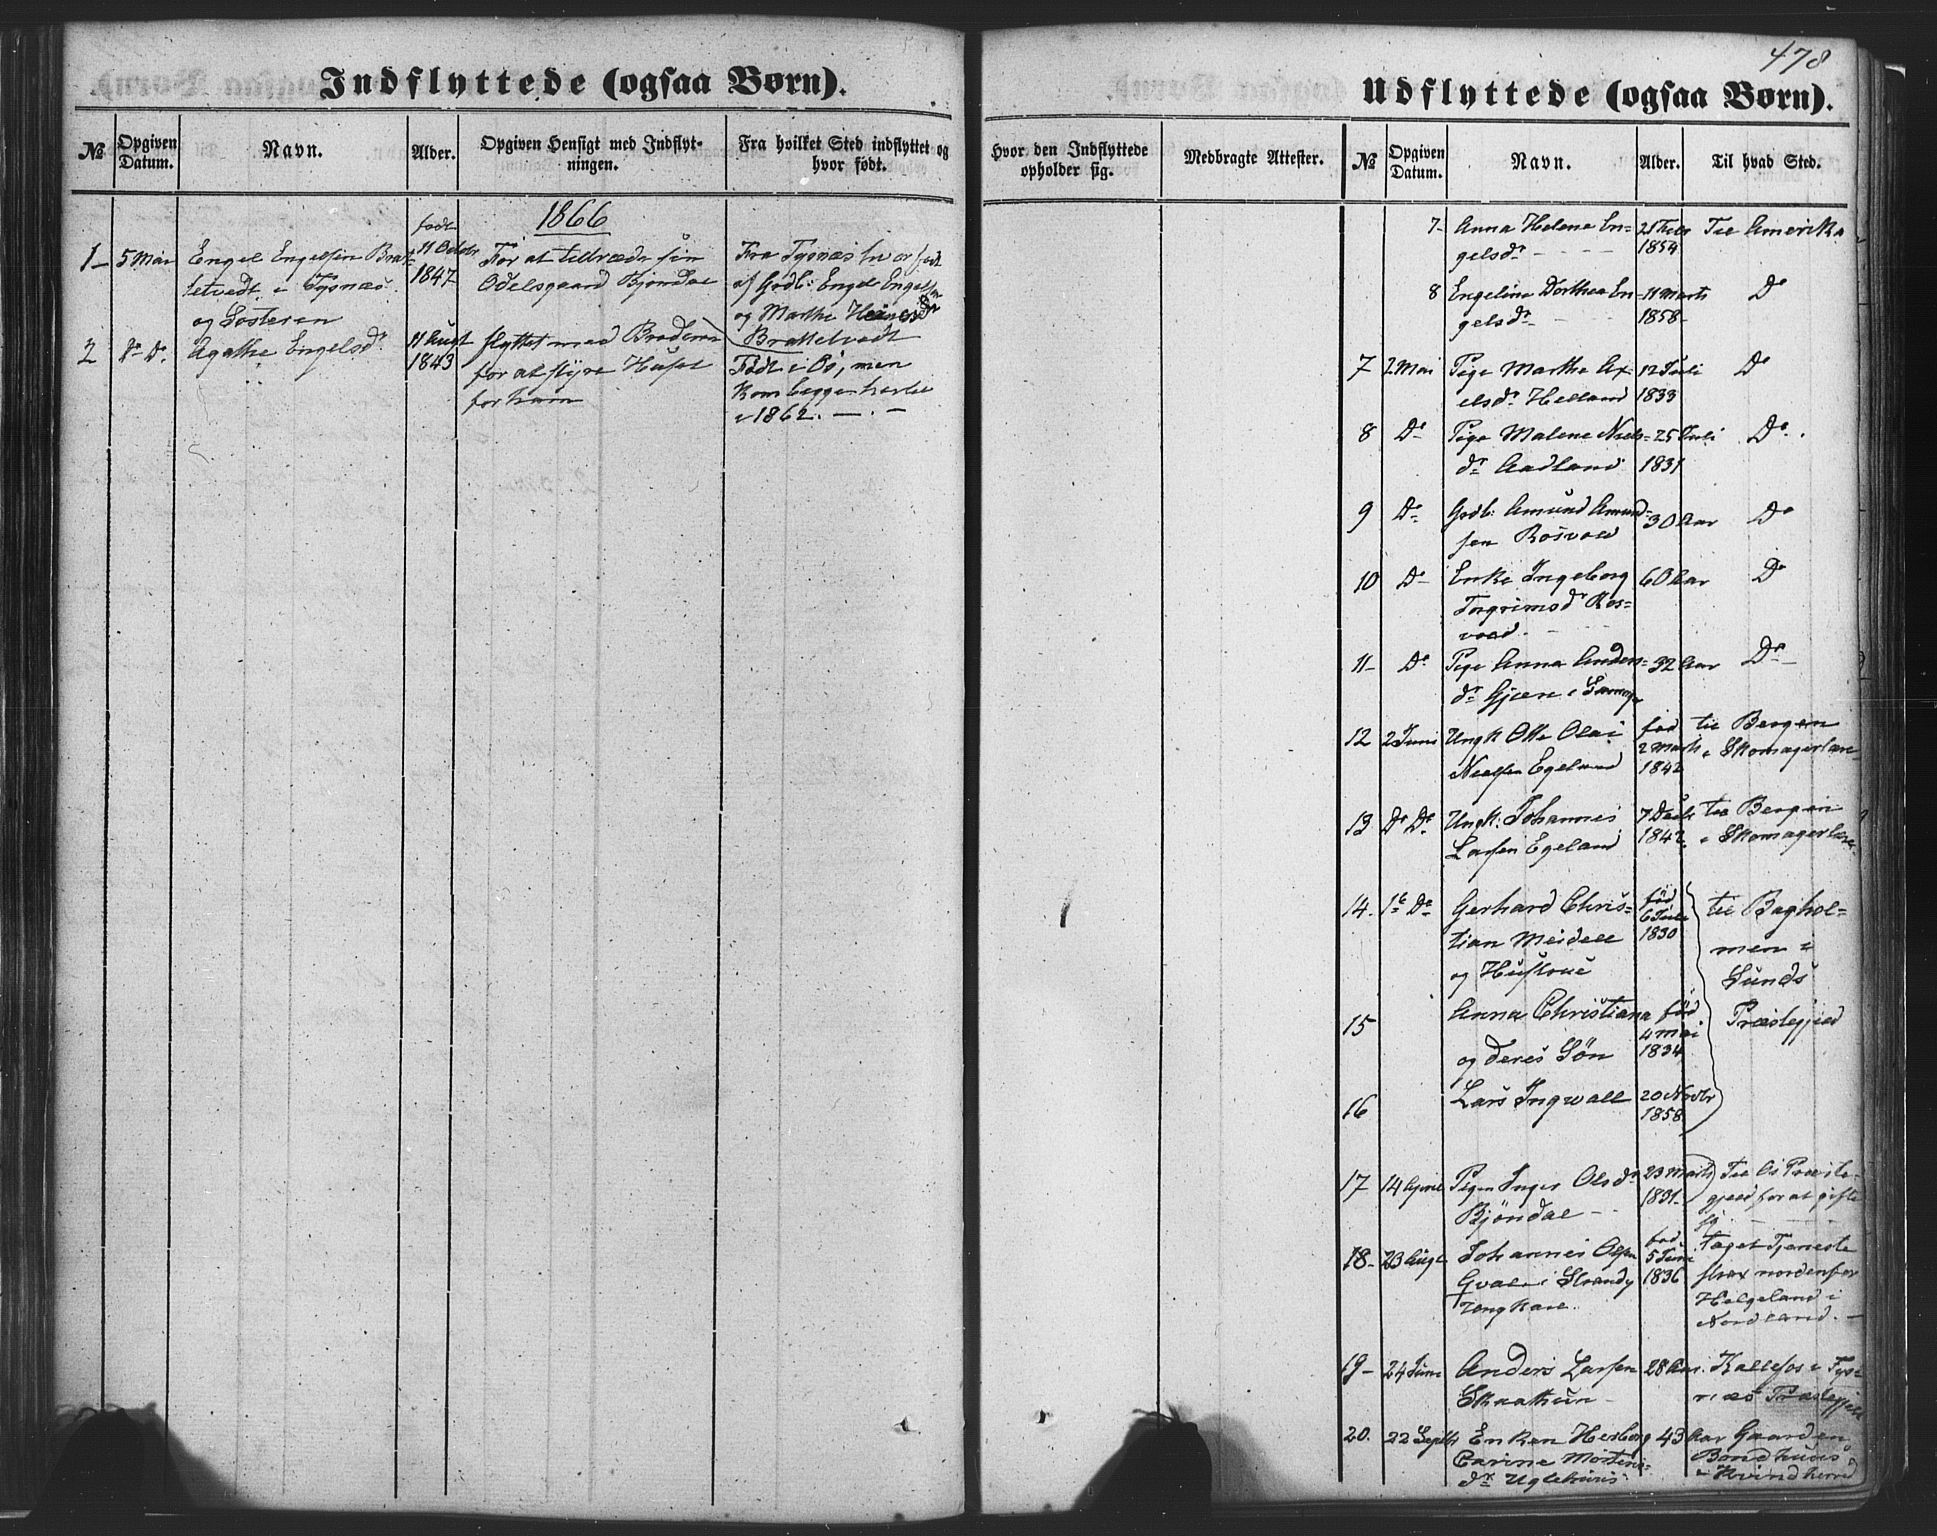 478
Indflyttede (ogsaa Børn).
№
Opgiven Datum.
Navn.
Alder.
Opgiven Hensigt med Indflyt-
ningen.
Fra hvilket Sted indflyttet og
hvor født.
1866
1 5 Mai Engel Engelsen Brat-
letvedt i Tysnæs
og Søsteren
født
11 Octbr
1847
For at tiltræde sin
Odelsgaard Bjøndal
Fra Tysnæs hvor født
af Gdb: Engel Engelsen
og Marthe
Brattetvedt
2 D° D° Agathe Engelsdr
11 Augt
1843
flyttet med Broderen
for at styre Huset
for ham
Født i Os, men
kom begge herfra
i 1862.
Hvor den Indflyttede
opholder sig.
Medbragte Attester.
Udflyttede (ogsaa Børn).
№
Opgiven Datum.
Navn.
Alder.
Til hvad Sted.
7 Anna Helene En-
gelsdr
1854
Til Amerika
8 Engeline Dorthea En-
gelsdr
11 Marts
1858
D°
7 2 Mai Pige Marthe Ax-
elsdr Helland
12 Juli
1833
D°
8 D° Pige Malene Niels-
dr Aadland
25 Juli
1831
D°
9 D° Gdb: Amund Amund-
sen Rosvold
30 Aar
D°
10 D° Enke Ingeborg
Torgrimsdr Ros-
vold
60 Aar
D°
11 D° Pige Anna Anders-
dr Gjæren i
32 Aar
D°
12 2 Juni Ungk Ole Olai
Nielsen Egeland
fød
2 Marts
1842
til Bergen
i Skomagerlære
13 D° D° Ungk: Johannes
Larsen Egeland
7 Decbr
1842
til Bergen
i Skomagerlære
14. 16 D° Gerhard Chris-
tian Meidell
og Hustrue
fød
6 Juli
1830
til Baghol-
men i
Sunds
Præstegjeld
15 Anna Christiana
og deres Søn
fød
4 Mai
1834
16 Lars Ingwall
20 Novbr
1858
17 14 April Pigen Inger Olsdr
Bjöndal
23 Marts
1831
Til Os Præste-
gjeld for at gifte
sig
18 23 Augt Johannes Olsen
Gvale i Strandv
Ungkarl.
fød
5 Juni
1836
taget Tjeneste
strax nordenfor
Helgeland i
Nordland.
19 24 Juni Anders Larsen
Skaathun
28 Aar.
i Tys-
næs Præstegjeld
20. 22 Septbr Enken Herborg
Carine Mortens-
dr Uglehuus
43 Aar
Gaarden
Bondhuus
i Kvindherred